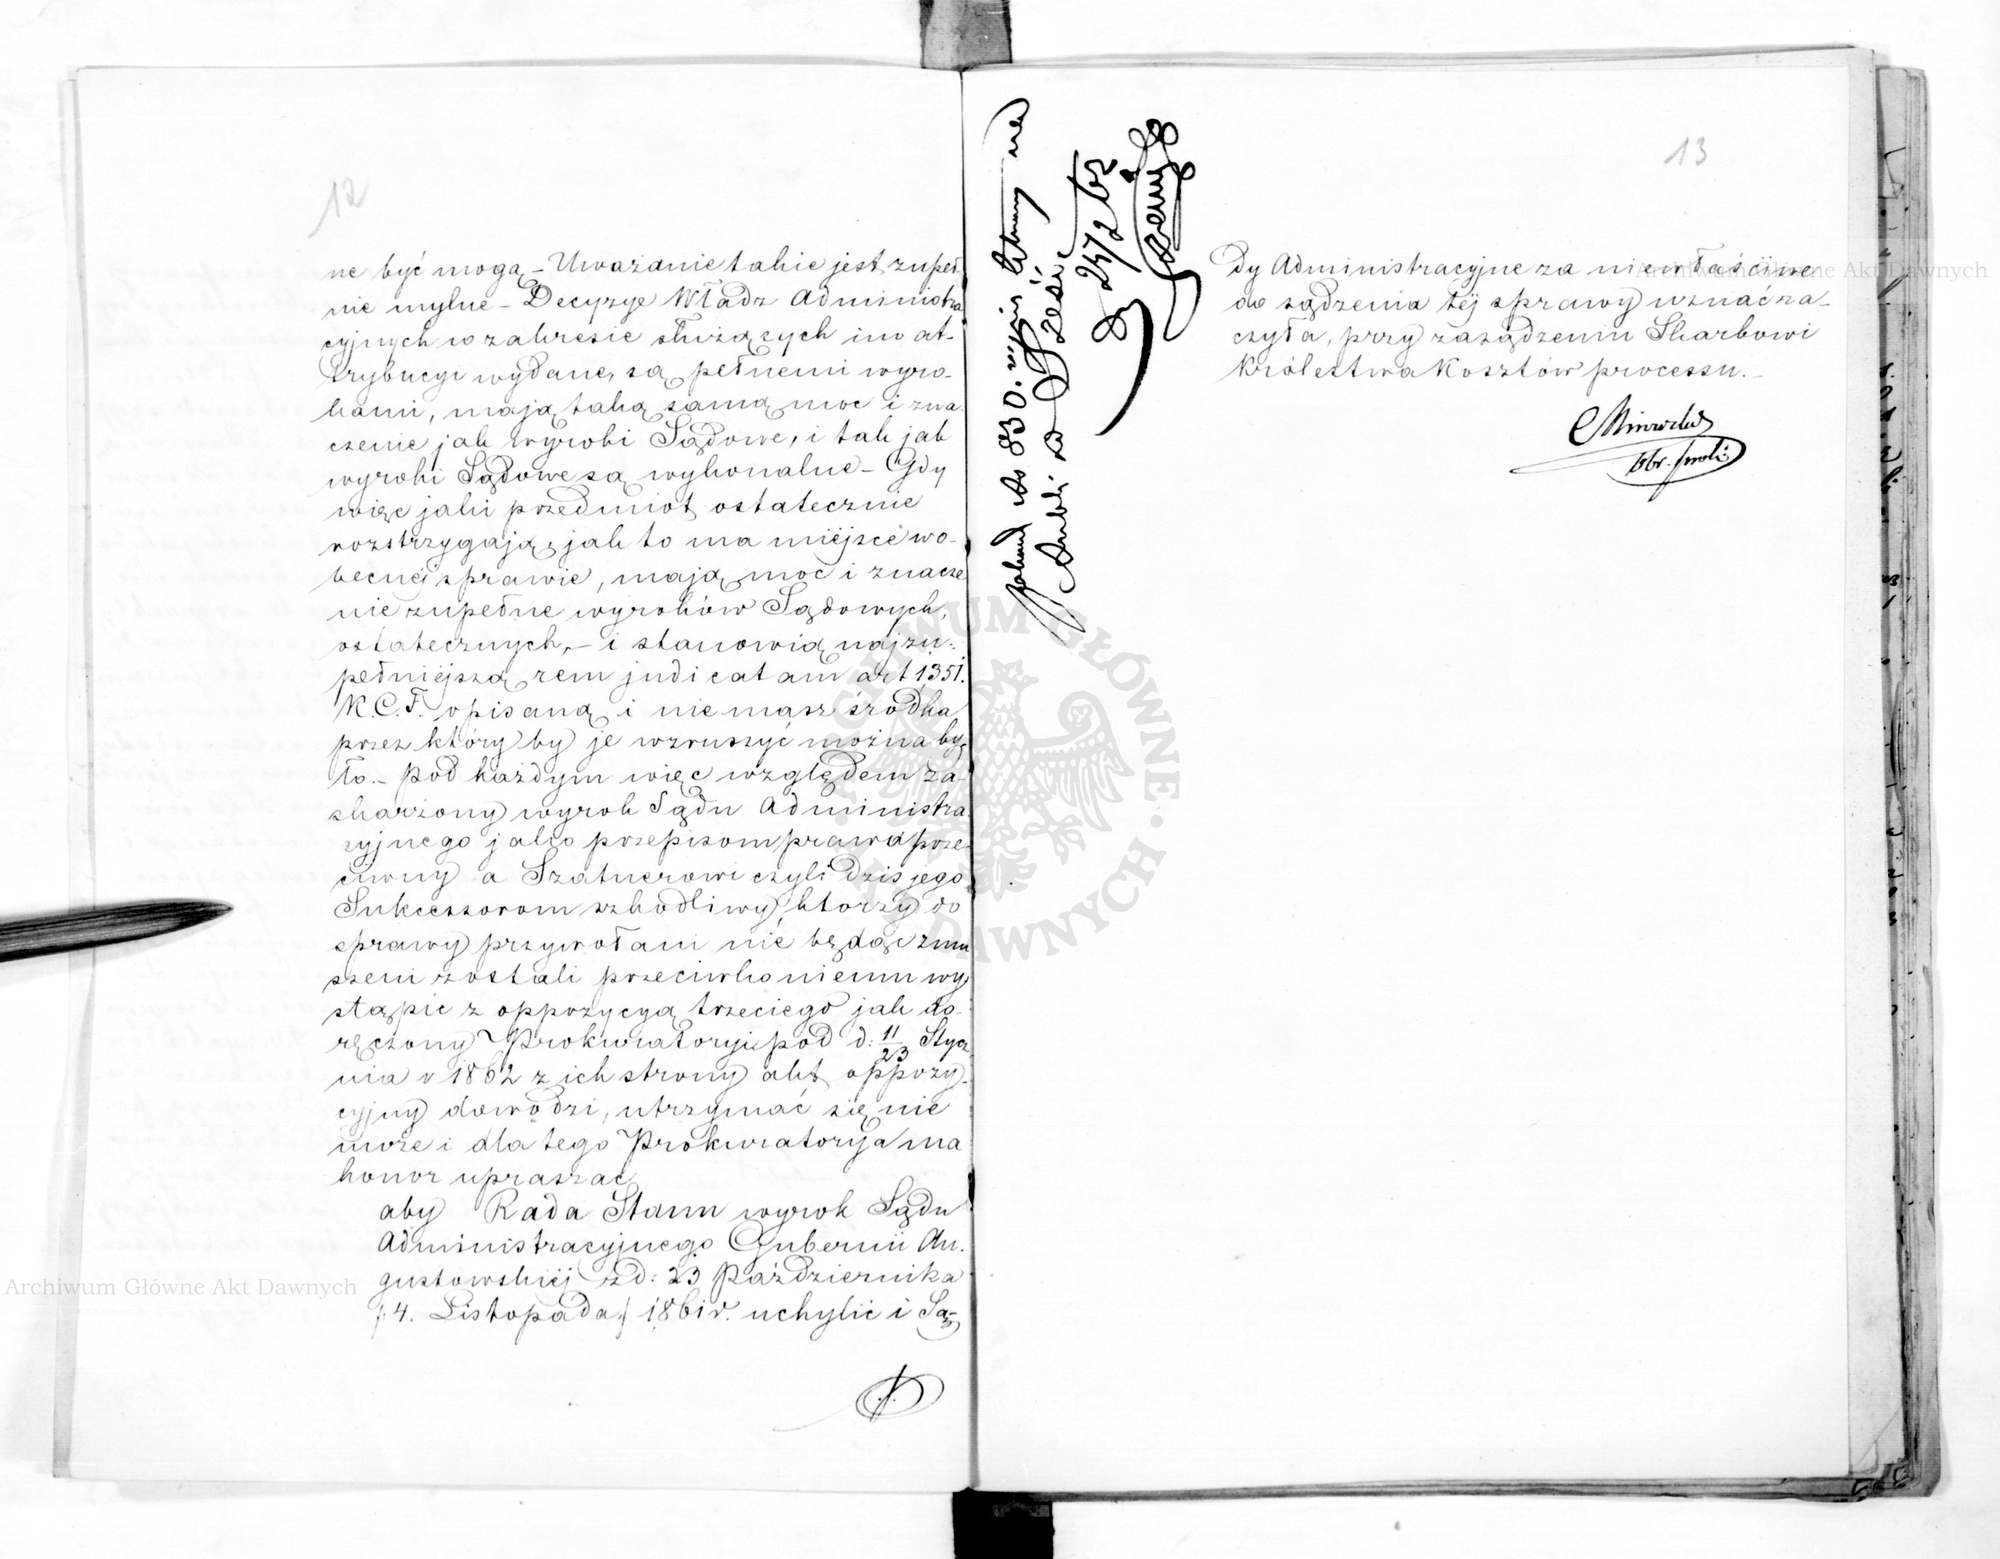 12
ne być mogą – Uważanie takie jest zupeł
nie mylne – Decyzye Władz Administra
cyjnych w zakresie służących im at-
trybucyi wydane, są pełnemi wyro-
kami, mają taką samą moc i zna
czenie jak wyroki Sądowe, i tak jak
wyroki Sądowe są wykonalne – Gdy
więc jaki przedmiot ostatecznie
rozstrzygają, jak to ma miejsce w o-
becnéj sprawie, mają moc i znacze
nie zupełne wyroków Sądowych,
ostatecznych, – i stanowią najzu-
pełniejszą rem judicatam art 1351.
K.C.F. opisaną i nie masz środka
przez któryby je wzruszyć można by
ło. – Pod każdym więc względem za
skarżony wyrok Sądu Administra
cyjnego jako przepisom prawa prze
ciwny a Szatnerowi czyli dziś jego
Sukcessorom szkodliwy, którzy do
sprawy przywołani nie będąc zmu
szeni zostali przeciwko niemu wy
stąpić z oppozycyą trzeciego jak do-
ręczony Prokuratoryi pod d: 11/23 Stycz
nia r 1862 z ich strony akt oppozy-
cyjny dowodzi, utrzymać się nie
może i dla tego Prokuratorya ma
honor upraszać
aby Rada Stanu wyrok Sądu
Administracyjnego Gubernii Au-
gustowskiéj z d: 23 Października
/:4. Listopada:/ 1861 r. uchylić i Są-
13
dy Administracyjne za niewłaściwe
do sądzenia téj sprawy uznać ra-
czyła, przy zasądzeniu Skarbowi
Królestwa Kosztów processu. –
No 830.
24/2 62
Archiwum Główne Akt Dawnych
Archiwum Główne Akt Dawnych
ARCHIWUM GŁÓWNE AKT DAWNYCH